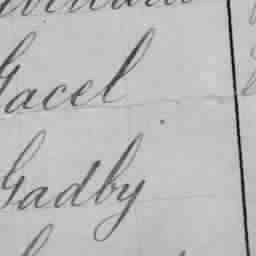 Gacel
Gadby